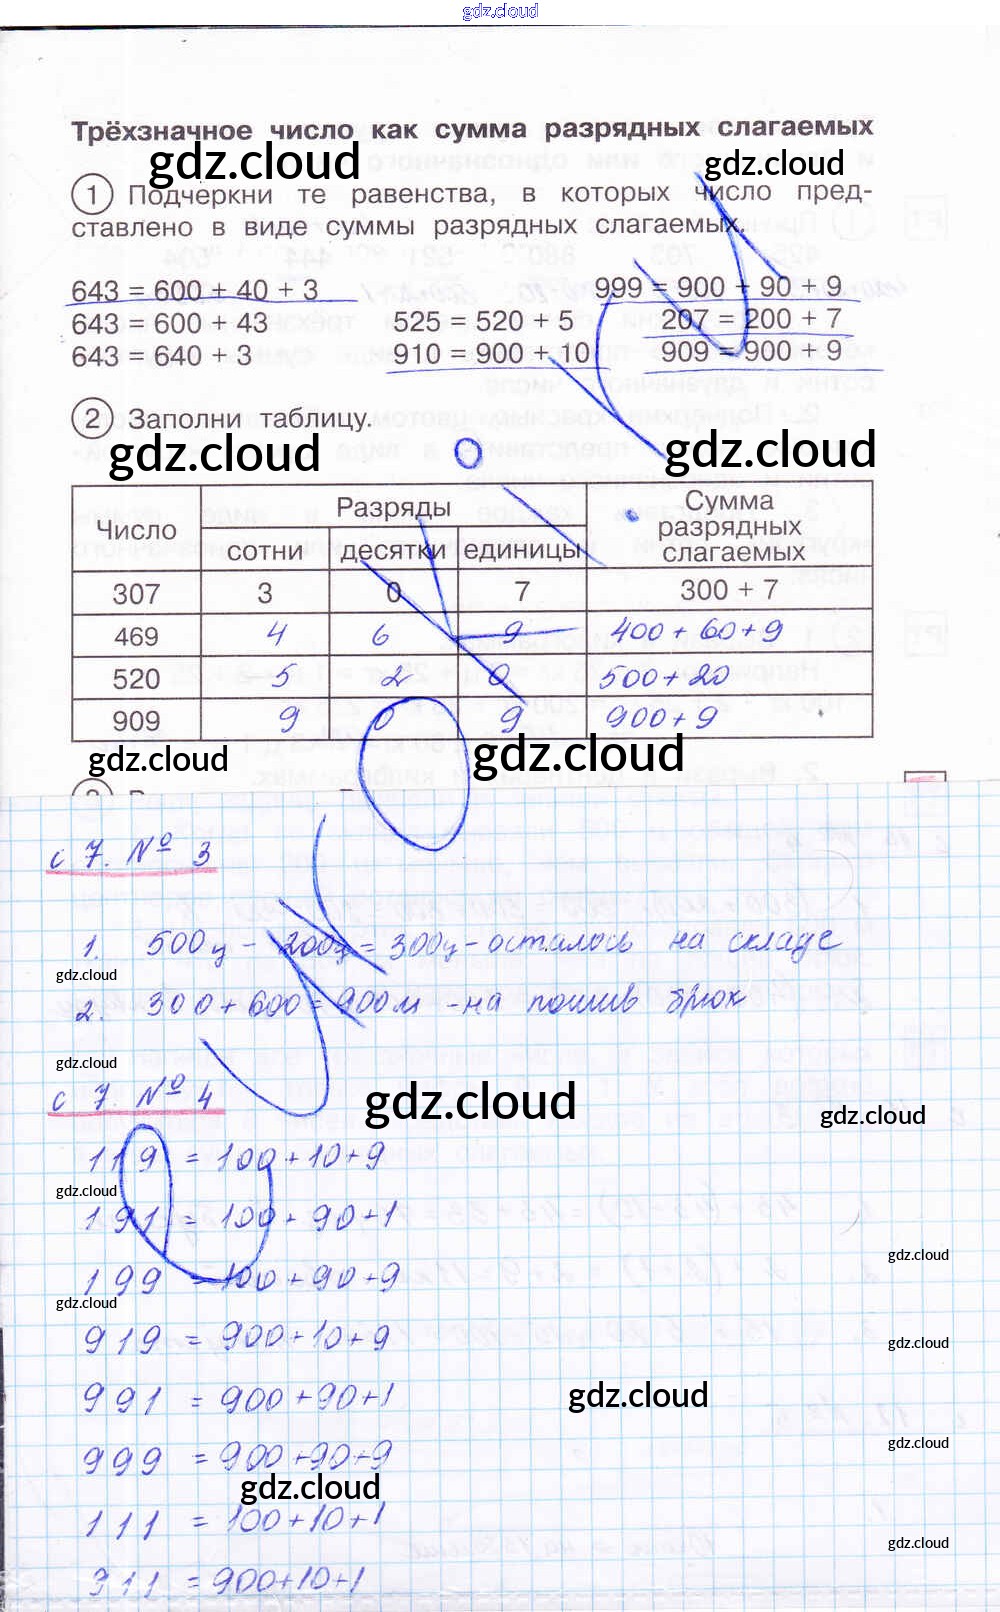 gdz.cloud
Трёхзначное число как сумма разрядных слагаемых
gdz.cloud gdz.cloud
1 Подчеркни те равенства, в которых число пред-
ставлено в виде суммы разрядных слагаемых.
643 = 600 + 40 + 3 999 = 900 + 90 + 9
643 = 600 + 43 525 = 520 + 5 207 = 200 + 7
643 = 640 + 3 910 = 900 + 10 909 = 900 + 9
2 Заполни таблицу.
gdz.cloud gdz.cloud
Число Разряды Сумма разрядных слагаемых
сотни десятки единицы
307 3 0 7 300 + 7
469 4 6 9 400 + 60 + 9
520 5 2 0 500 + 20
909 9 0 9 900 + 9
gdz.cloud gdz.cloud
с 7. № 3
1. 500ц - 200ц = 300ц - осталось на складе
gdz.cloud
2. 300 + 600 = 900м - на пошив брюк
gdz.cloud
с 7. № 4
gdz.cloud gdz.cloud
119 = 100 + 10 + 9
gdz.cloud
191 = 100 + 90 + 1
gdz.cloud
199 = 100 + 90 + 9
gdz.cloud
919 = 900 + 10 + 9
gdz.cloud
991 = 900 + 90 + 1
gdz.cloud
gdz.cloud
999 = 900 + 90 + 9
gdz.cloud
111 = 100 + 10 + 1
gdz.cloud
911 = 900 + 10 + 1